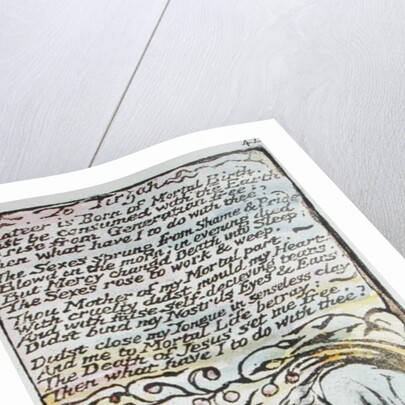 42
To Tirzah
ateer is Born of Mortal Birth,
st be consumed with the Earth
rise from Generation free:
n what have I to do with thee?
he Sexes sprung from Shame & Pride
Blow'd in the morn: in evening died
But Mercy changd Death into Sleep
The Sexes rose to work & weep.
Thou Mother of my Mortal part
With cruelty didst mould my Heart
And with false self-decieving tears
Didst bind my Nostrils Eyes & Ears
Didst close my Tongue in senseless clay
And me to Mortal Life betray:
The Death of Jesus set me free
Then what have I to do with thee?